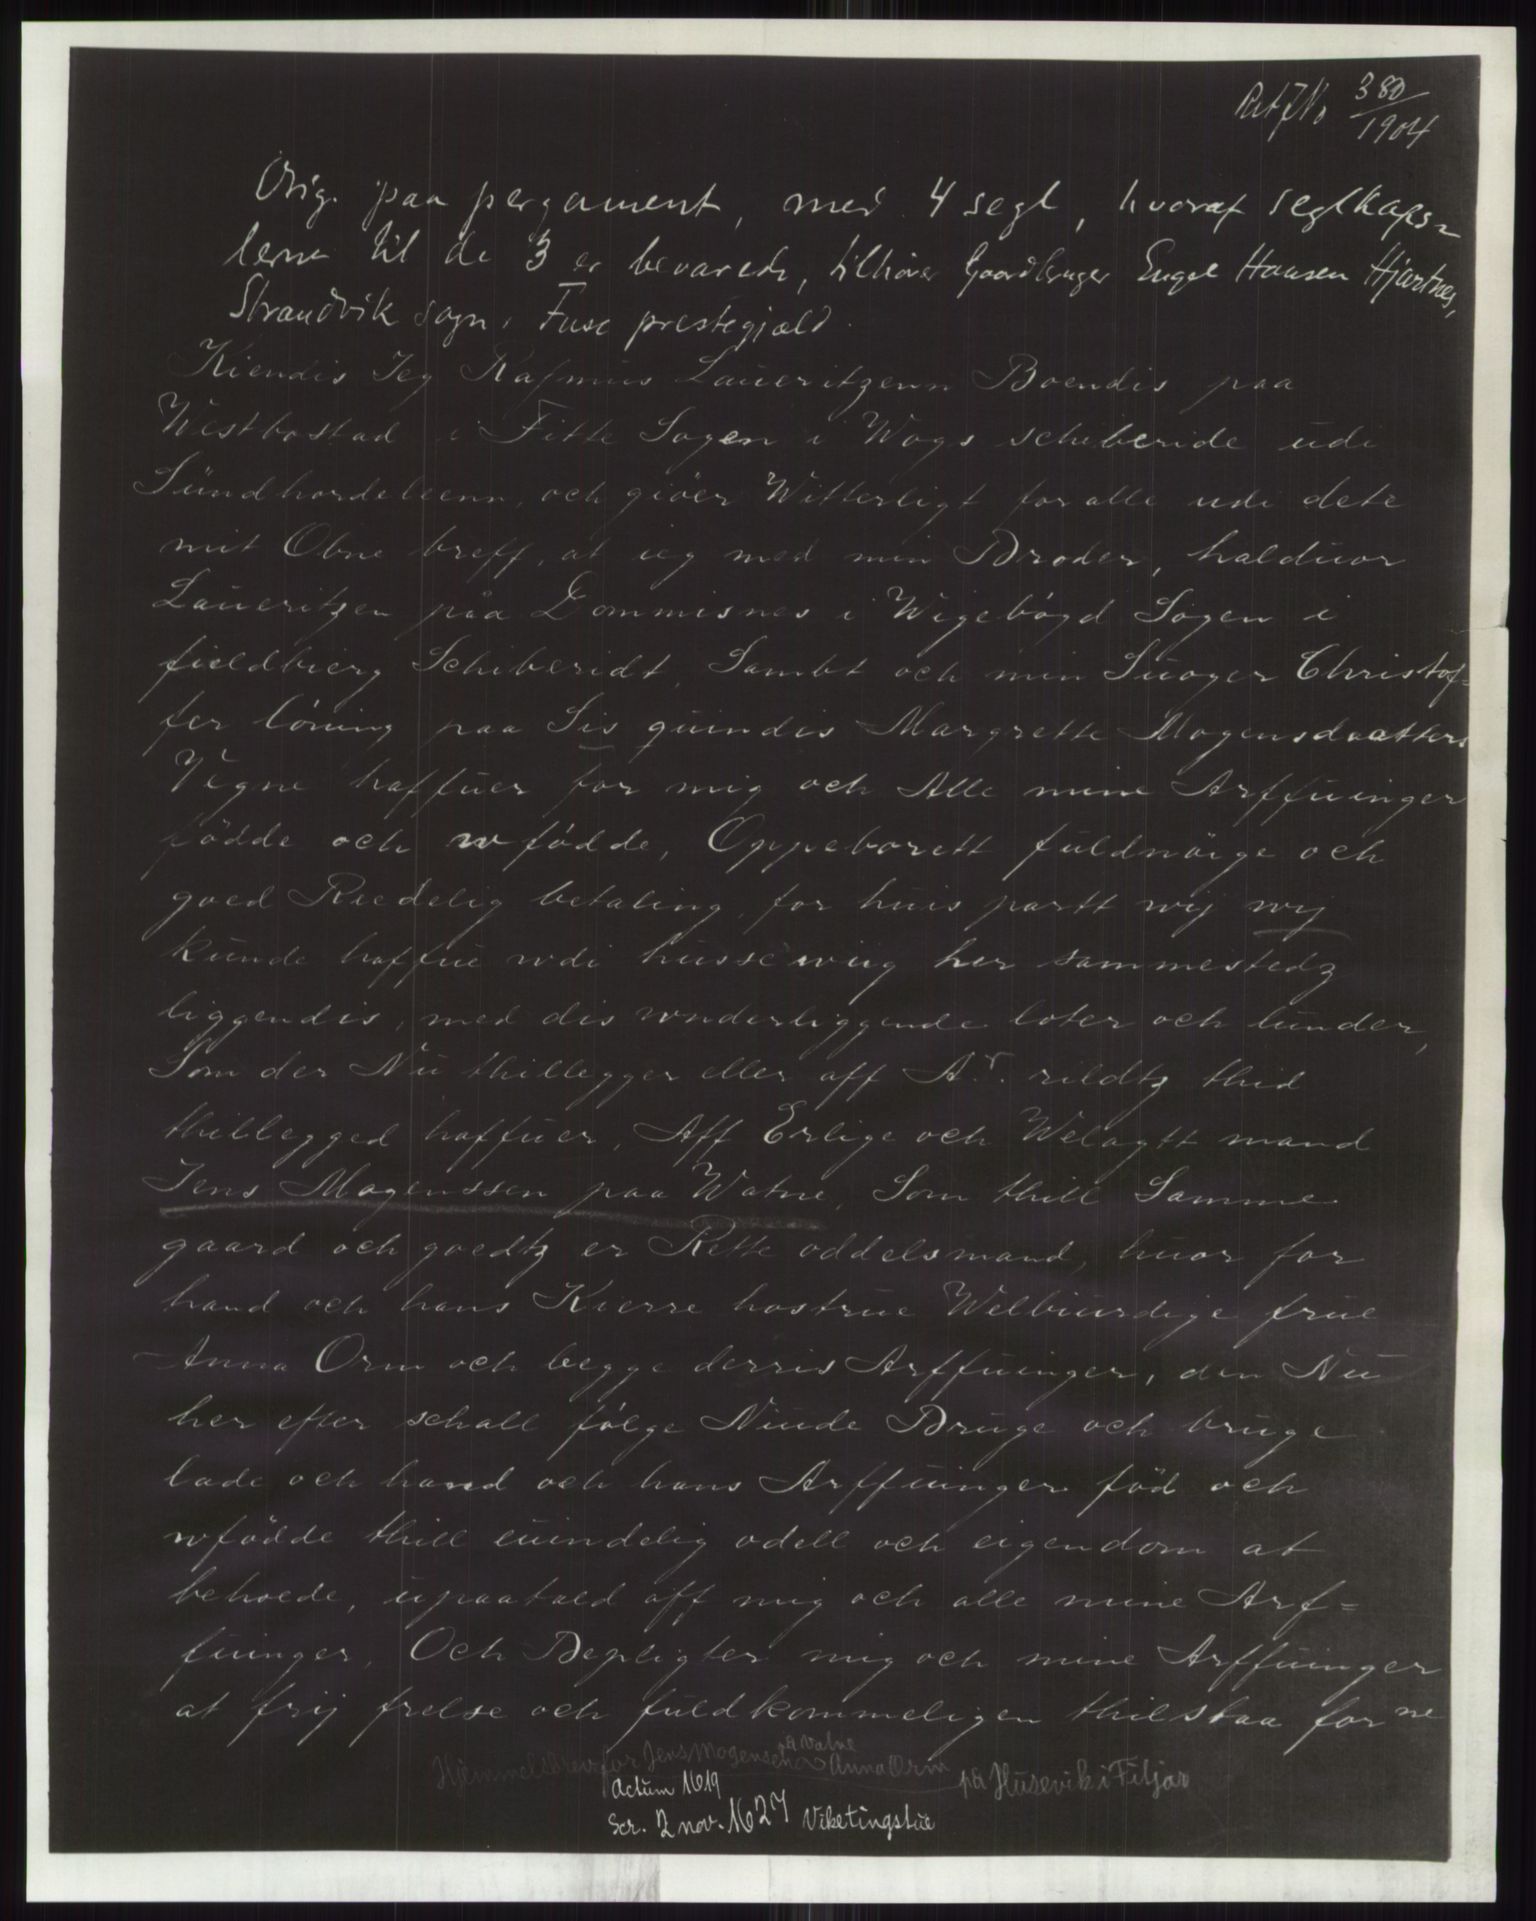 380
1904
Orig. paa pergament, med 4 segl, hvoraf seglkaps=
lerne til de 3 er bevarede, tilhører Gaardbruger Engel Hansen Hjartnes,
Strandvik sogn, Fuse prestegjæld.
Kiendis Jeg Rasmus Laueritzenn Boendis paa
Westbostad i Fitte Sogen i Wogs schiberide udi
Sündhordeleenn, och giöer Witterligt for alle udi dete
mit Obne breff, at ieg med min Broder, halduor
Laueritzen paa Dommisnes i Wigebögd Sogen i
fieldbierg Schiberidt, Sambt och min Suoger Christof=
fer löning paa Sis quindis Margrette Mogensdaatters
Vegne haffuer for mig och Alle mine Arffuinger
födde och wfödde, Oppeborett fuldnöige och
goed Riedelig betaling, for huis partt wij wij
kunde haffue wdi hussewiig her sammestedz
liggendis, med dis wnderliggende loter och lunder,
Som der Nu thillegger eller aff Ar. rildtz thid
thillegged haffuer, Aff Erlige och Welagtt mand
Jens Mogenssen paa Watne, Som thill Samme
gaard och goedtz er Rette oddelsmand, huor for
hand och hans Kierre hostrue Welbiurdige frue
Anna Orm och begge derris Arffuinger, den Nu
her efter schall fölge Niude Bruge och bruge
lade och hand och hans Arffuinger föd och
wfödde thill euindelig odell och eigendom at
behoede, upaatald aff mig och alle mine Arf=
fuinger, Och Bepligter mig och mine Arffuinger
at frij frelse och fuldkommeligen thilstaa for ne
Hjemmelsbrev for Jens Mogensøn a Vatne Anna Orm på Husevik i Fitjar
Actum 1619
Scr. 2 nov. 1627 Viketingstue